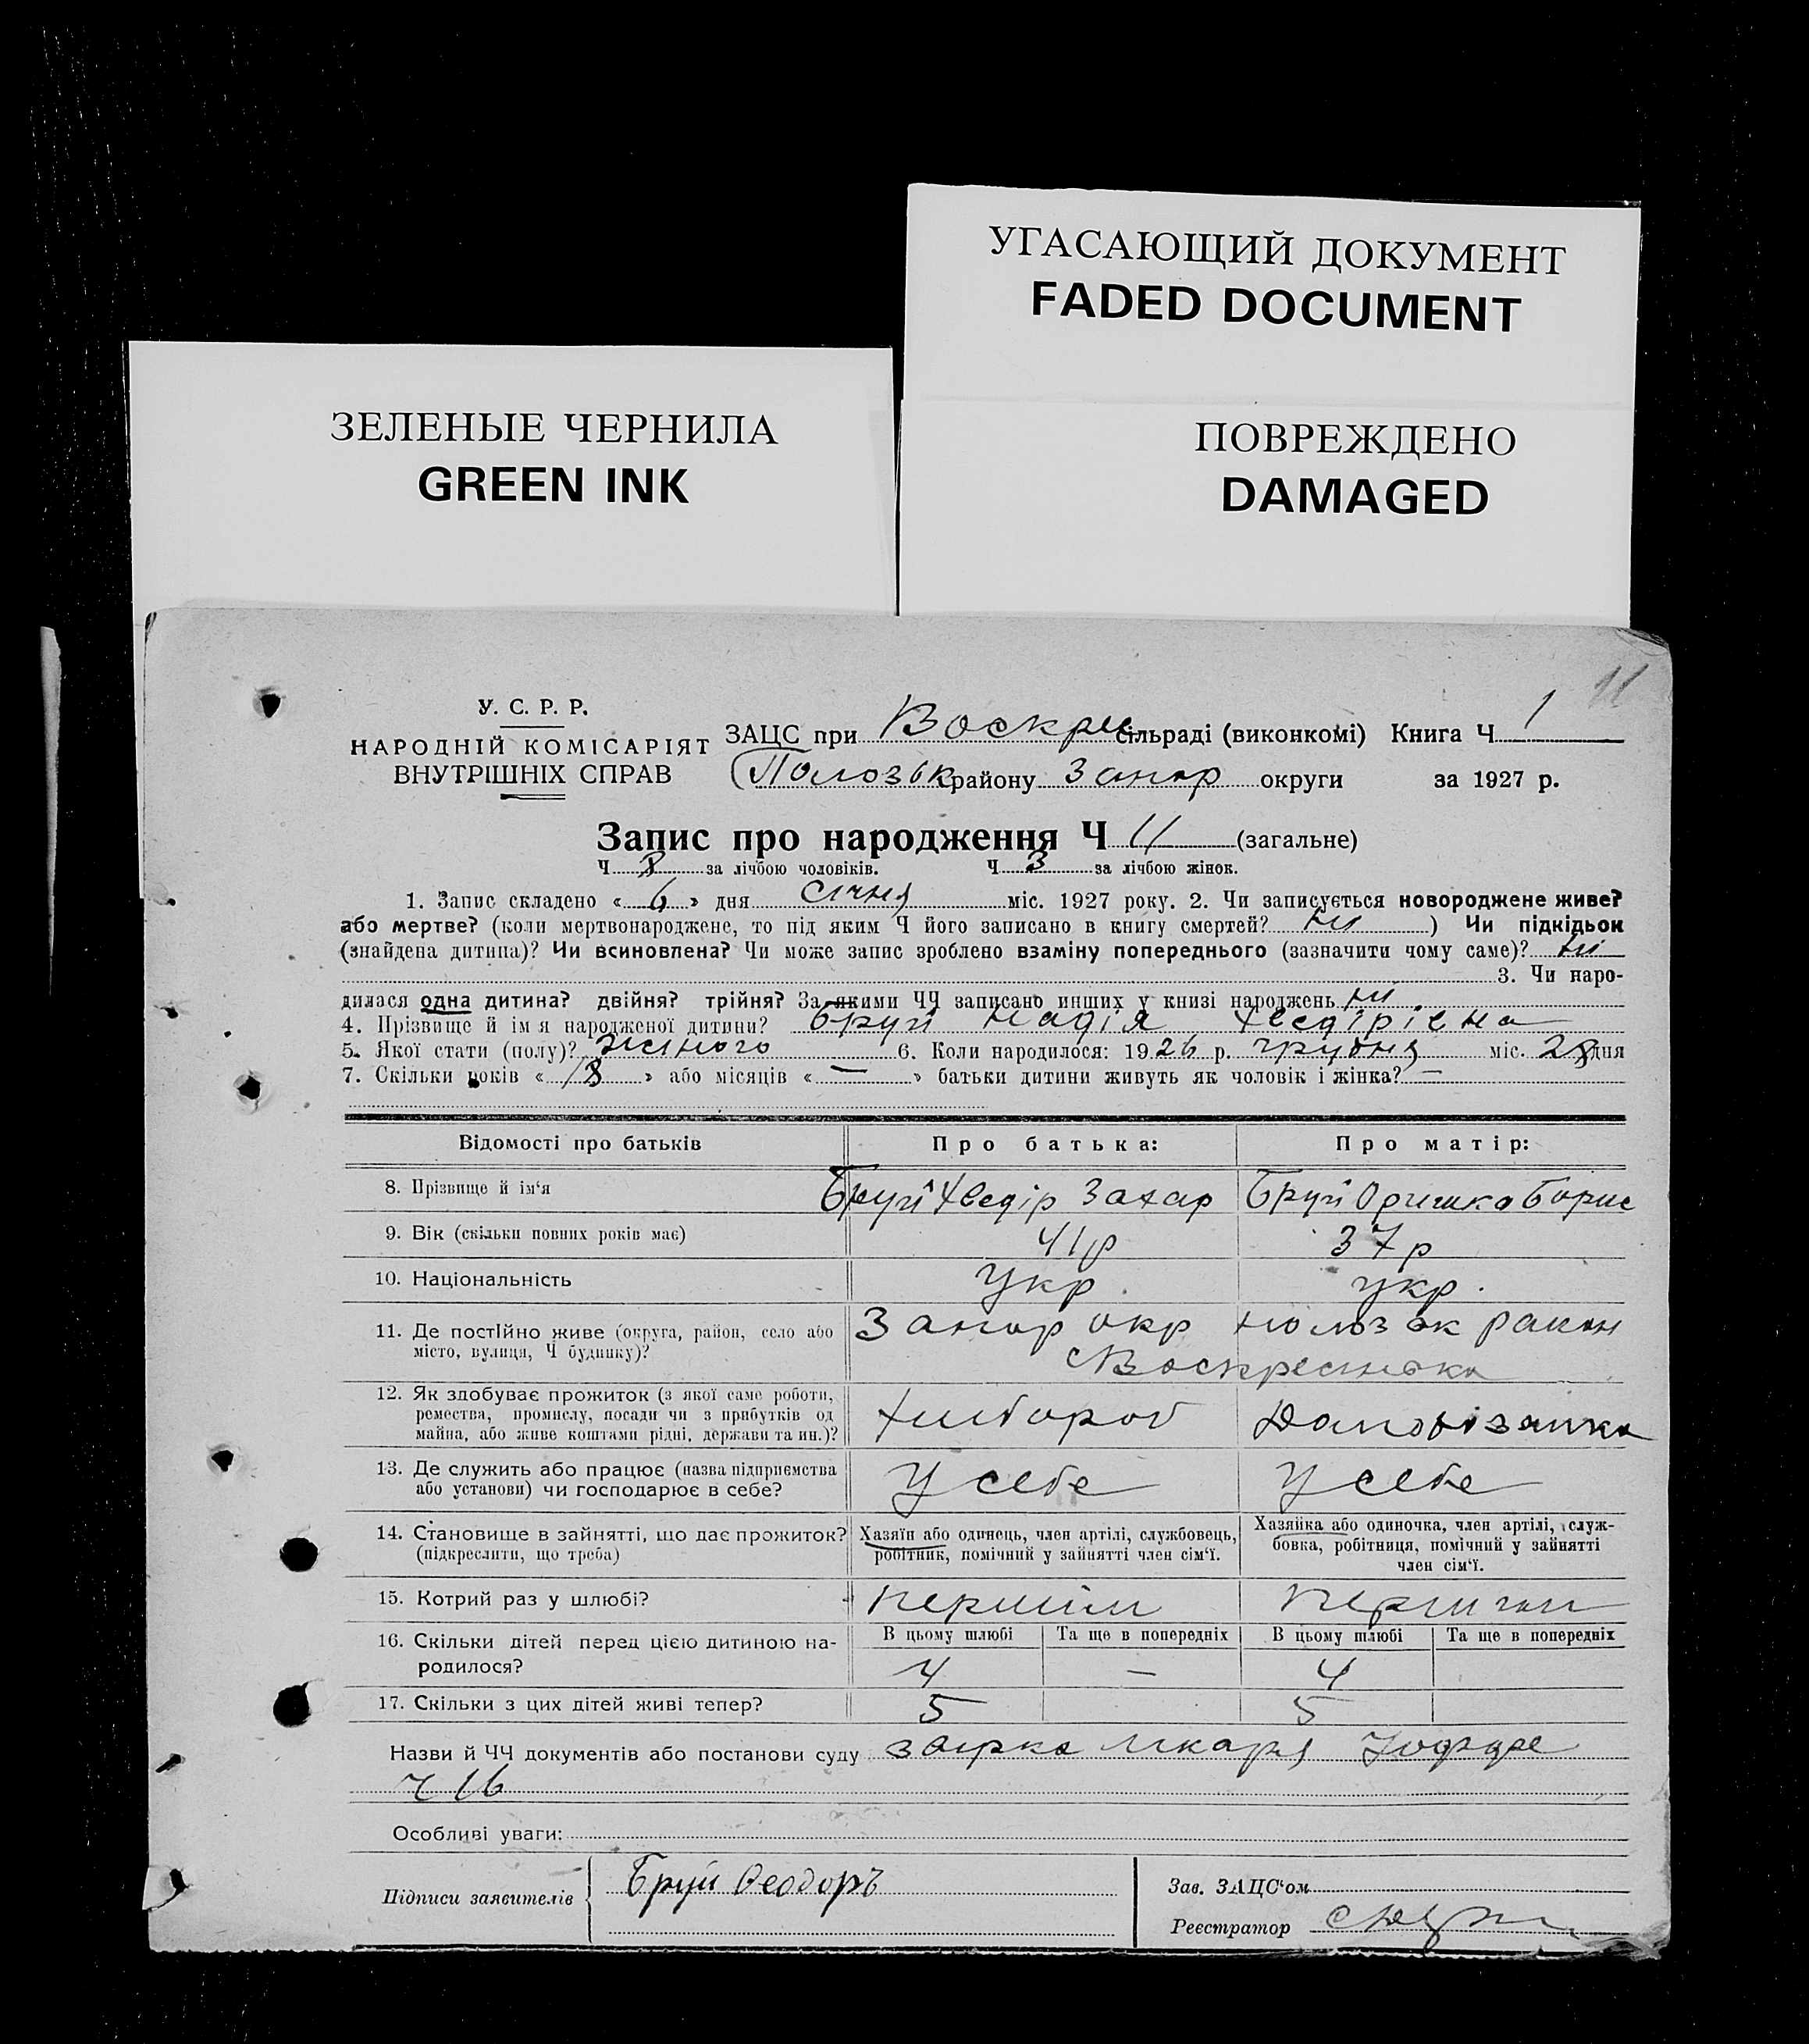 УГАСАЮЩИЙ ДОКУМЕНТ
FADED DOCUMENT
ЗЕЛЕНЫЕ ЧЕРНИЛА
GREEN INK
ПОВРЕЖДЕНО
DAMAGED
11
У. С. Р. Р.
НАРОДНІЙ КОМІСАРІЯТ
ВНУТРІШНІХ СПРАВ
ЗАЦС при Воскре сільраді (виконкомі) Книга Ч 1
Полозьк району Запор округи за 1927 р.
Запис про народження Ч 11 (загальне)
Ч 8 за лічбою чоловіків. Ч 3 за лічбою жінок.
1. Запис складено « 6 » дня січня міс. 1927 року. 2. Чи записується новороджене живе?
або мертве? (коли мертвонароджене, то під яким Ч його записано в книгу смертей? ні ) Чи підкідьок
(знайдена дитина)? Чи всиновлена? Чи може запис зроблено взаміну попереднього (зазначити чому саме)? ні
3. Чи наро-
дилася одна дитина? двійня? трійня? За якими ЧЧ записано инших у книзі народжень ні
4. Прізвище й ім я народженої дитини? Бруй Надія Хведірівна
5. Якої стати (полу)? жіного 6. Коли народилося: 1926 р. грудня міс. 28 дня
7. Скільки років « 18 » або місяців « — » батьки дитини живуть як чоловік і жінка? —
Відомості про батьків Про батька: Про матір:
8. Прізвище й ім'я Бруй Хведір Захар Бруй Оришка Борис
9. Вік (скільки повних років має) 41 р 37 р
10. Національність Укр. укр.
11. Де постійно живе (округа, район, село або Запор окр полозьк район
місто, вулиця, Ч будинку)? Воскресенька
12. Як здобуває прожиток (з якої саме роботи,
ремества, промислу, посади чи з прибутків од
майна, або живе коштами рідні, держави та ин.)? Хлібороб
13. Де служить або працює (назва підприємства
або установи) чи господарює в себе? У себе У себе
14. Становище в зайнятті, що дає прожиток?
(підкреслити, що треба)
Хазяїн або одинець, член артілі, службовець,
робітник, помічний у зайнятті член сім'ї.
Хазяйка або одиночка, член артілі, служ-
бовка, робітниця, помічний у зайнятті
член сім'ї.
15. Котрий раз у шлюбі? первий
16. Скільки дітей перед цією дитиною на-
родилося?
В цьому шлюбі Та ще в попередніх В цьому шлюбі Та ще в попередніх
4 — 4
17. Скільки з цих дітей живі тепер? 5 5
Назви й ЧЧ документів або постанови суду лікаря
Ч 16
Особливі уваги:
Підписи заявителів Бруй Ѳеодоръ
Зав. ЗАЦС'ом
Реєстратор